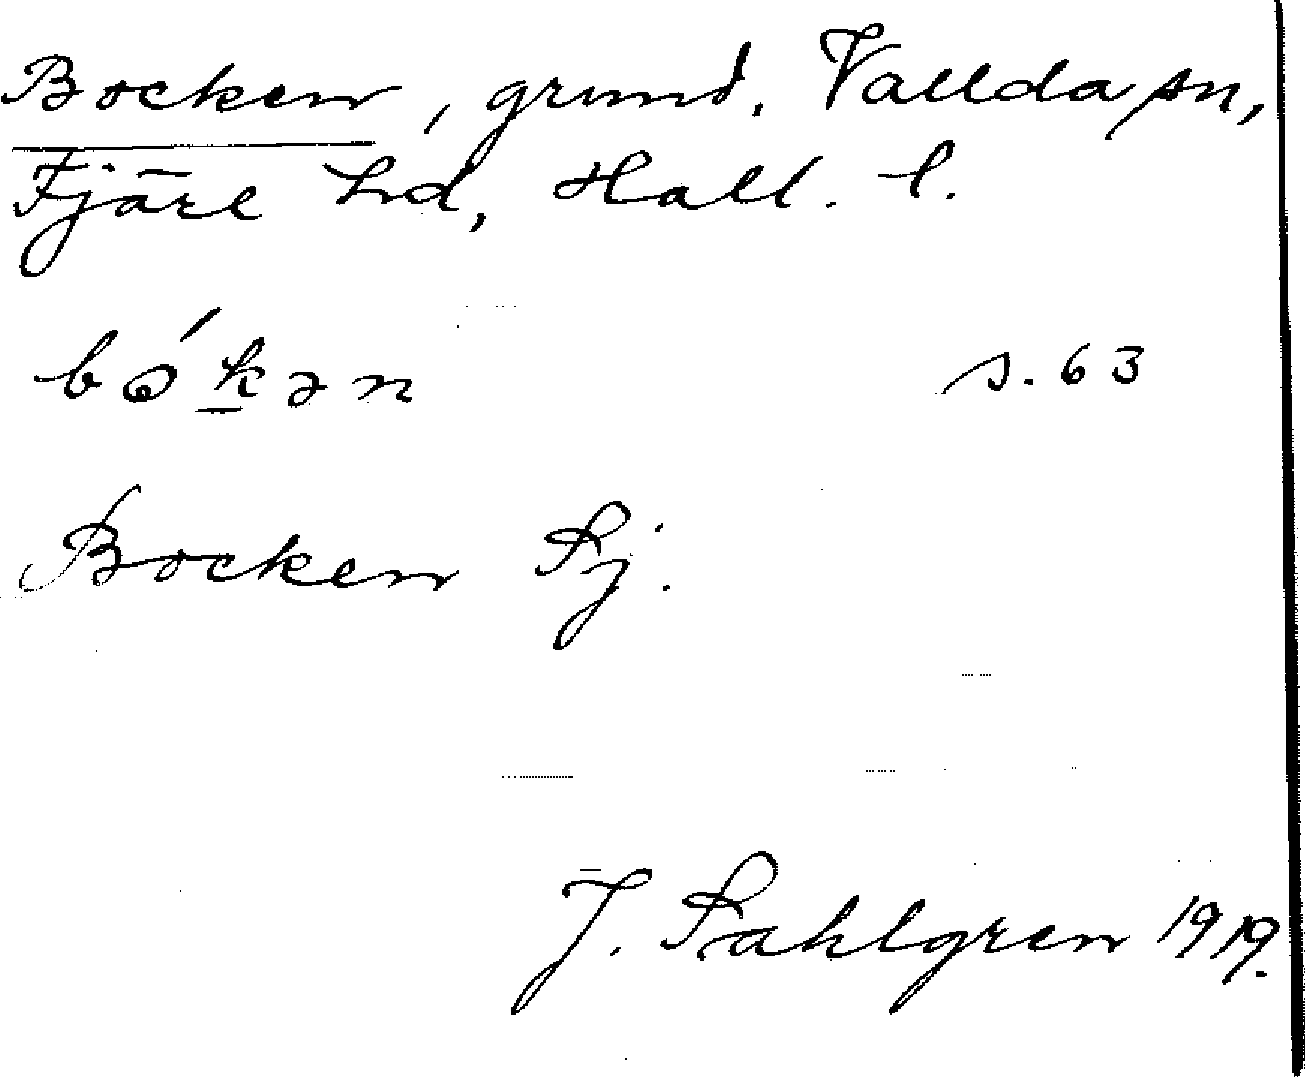 Bocken, grund. Vallda sn,
Fjäre hd, Hall. l.
bókən s. 63
Bocken Sj.
J. Sahlgren 1919.